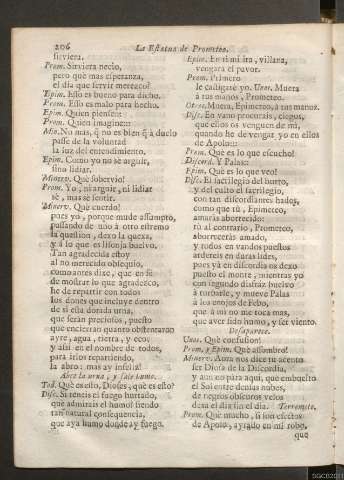 206
La Estatua de Prometeo.
sirviera.
Prom. Sirviera necio,
pero què mas esperanza,
el dia que servir merezco?
Epim. Esso es bueno para dicho.
Prom. Esso es malo para hecho.
Epim. Quien piense::
Prom. Quien imagine::
Min. No mas, q̃ no es bien q̃ à duelo
passe de la voluntad
la luz del entendimiento.
Epim. Como yo no sè arguir,
sino lidiar.
Minerv. Què sobervio!
Prom. Yo, ni arguir, ni lidiar
sè, mas sè sentir.
Minerv. Què cuerdo!
pues yo, porque mude assumpto,
passando de uno à otro estremo
la question, dexo la quexa,
y à lo que es lisonja buelvo.
Tan agradecida estoy
al no merecido obsequio,
como antes dixe, que en fè
de mostrar lo que agradezco,
he de repartir con todos
los dones que incluye dentro
de si esta dorada urna,
que seràn preciosos, puesto
que encierran quanto obstentaron
ayre, agua, tierra, y
y assi en el nombre de todos,
para irlos repartiendo,
la abro: mas ay infeliz!
Abre la urna, y sale humo.
Tod. Què es esto, Dioses, què es esto?
Disc. Si teneis el fuego hurtado,
què admirais el humo? siendo
tan natural consequencia,
que aya humo donde ay fuego.
Epim. En ti mi ira, villana,
vengarà el pavor.
Prom. Primero
le castigarè yo. Unos. Muera
à tus manos, Prometeo.
Otros. Muera, Epimeteo, à tus manos.
Disc. En vano procurais, ciegos,
que ellos os venguen de mi,
quando he de vengar yo en ellos
de Apolo::
Prom. Què es lo que escucho!
Discord. Y Palas::
Epim. Què es lo que veo!
Disc. El sacrilegio del hurto,
y del culto el sacrilegio,
con tan discordantes hados,
como que tu, Epimeteo,
amaràs aborrecido:
tù al contrario, Prometeo,
aborreceràs amado,
y todos en vandos puestos
ardereis en duras lides,
pues yà en discordia os dexo
puesto el monte, mientras yo
con segundo disfràz buelvo
à turbarle, y mueve Palas
à los enojos de Febo,
que à mi no me toca mas,
que aver sido humo, y ser viento.
Desaparece.
Unos. Què confusion!
Prom. y Epim. Què assombro!
Minerv. Aora nos dice tu acento
ser Diosa de la Discordia,
y aun no para aqui, que embuelto
el Sol entre densas nubes,
de negros obscuros velos
dexa el dia sin el dia. Terremoto.
Prom. Què mucho, si son efectos
de Apolo, ayrado en mi robo,
que